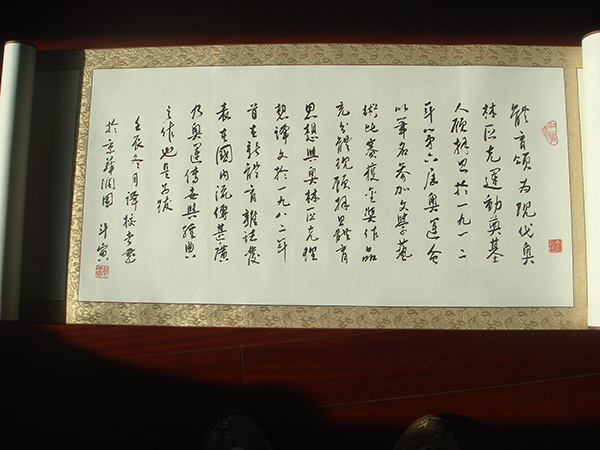 體育頌為現代奧
林匹克運動奠基
人顧拜旦於一九一二
年第六屆奧運會
以筆名參加文學藝
術比賽獲金奖作品
充分體現顧拜旦體育
思想與奧林匹克理
想譯文於一九八二年
首在新體育雜誌發
表在國内流傳甚廣
乃奧運傳世與經典
之作也是為跋
壬辰冬月譯校
於京華潤園 斗寅